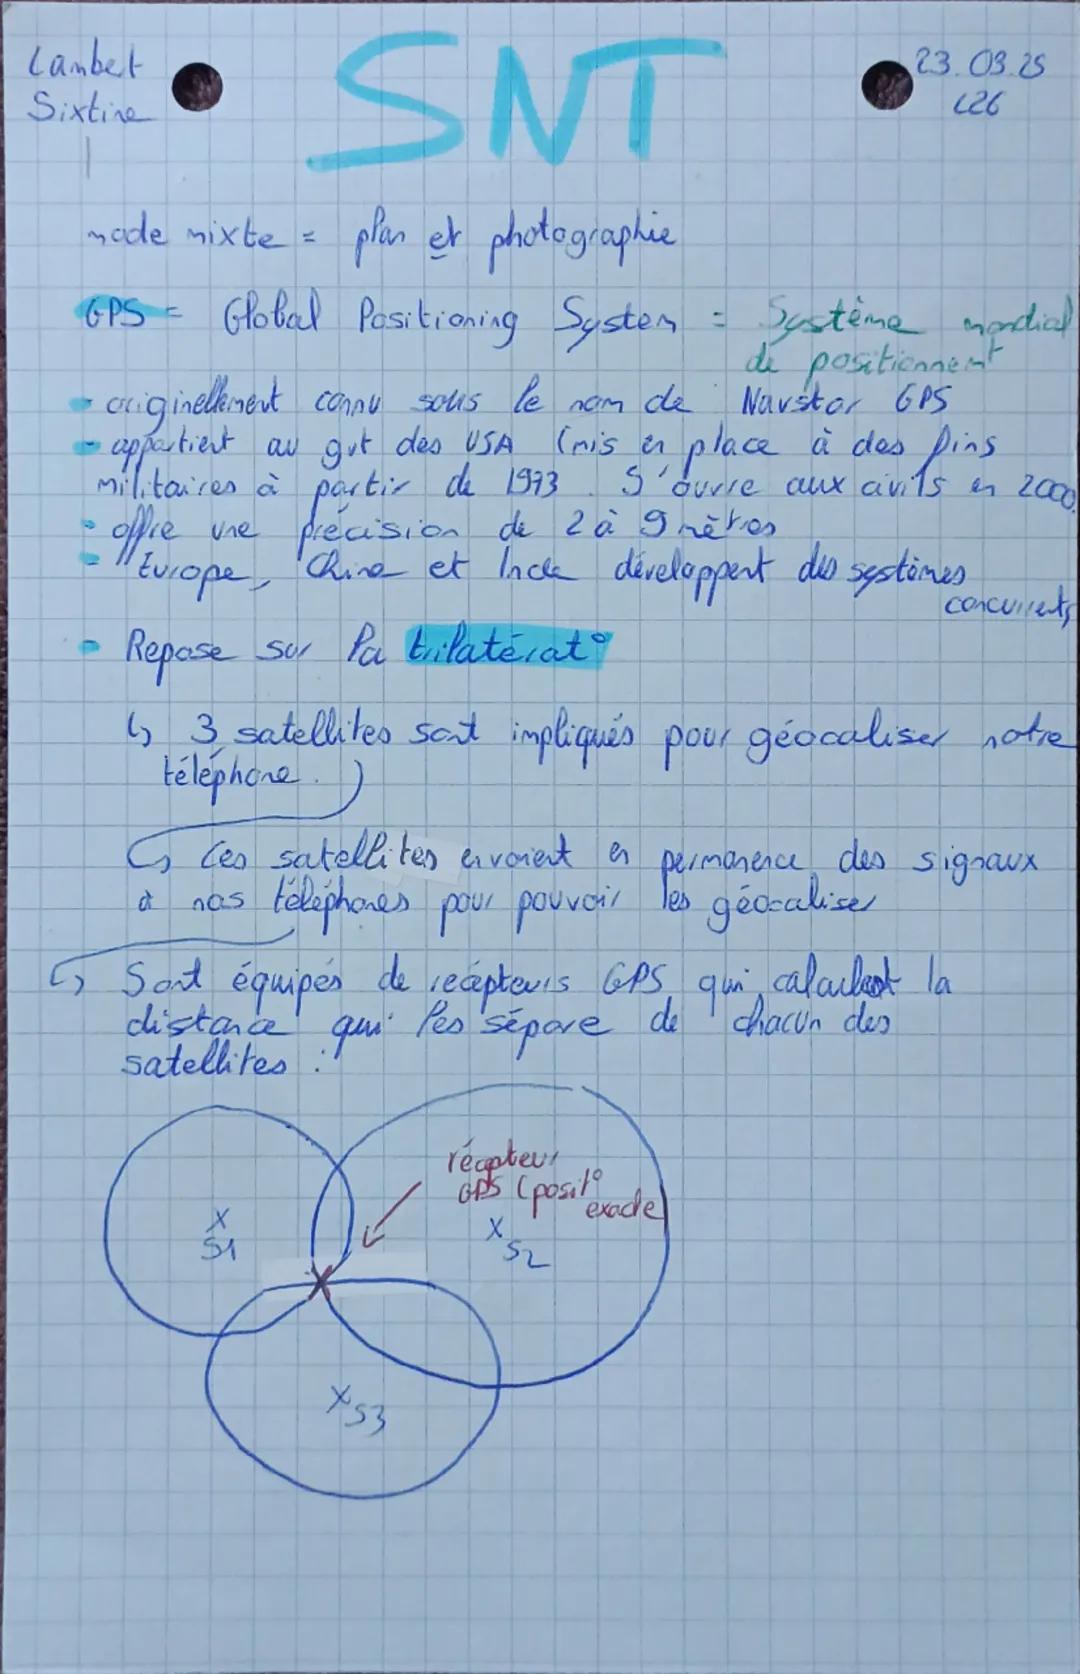 Lambert
Sixtine
SNT
23.03.25
L26
mode mixte = plan et photographie
GPS = Global Positioning System = Système mondial
de positionnemt
- originellement connu sous le nom de Navstar GPS
- appartient au gvt des USA (mis en place à des fins
militaires à partir de 1973. S'ouvre aux civils en 2000.
- offre une précision de 2 à 9 mètres
- Europe, Chine et Inde développent des systèmes
concurrents
- Repose sur la trilatérat°
↳ 3 satellites sont impliqués pour géocaliser notre
téléphone.
↳ Ces satellites envoient en permanence des signaux
à nos téléphones pour pouvoir les géocaliser
↳ Sont équipés de récepteurs GPS qui calculent la
distance qui les sépare de chacun des
satellites :
récepteur
GPS (posit°
exacte
X
S1
X
S2
X
X S3